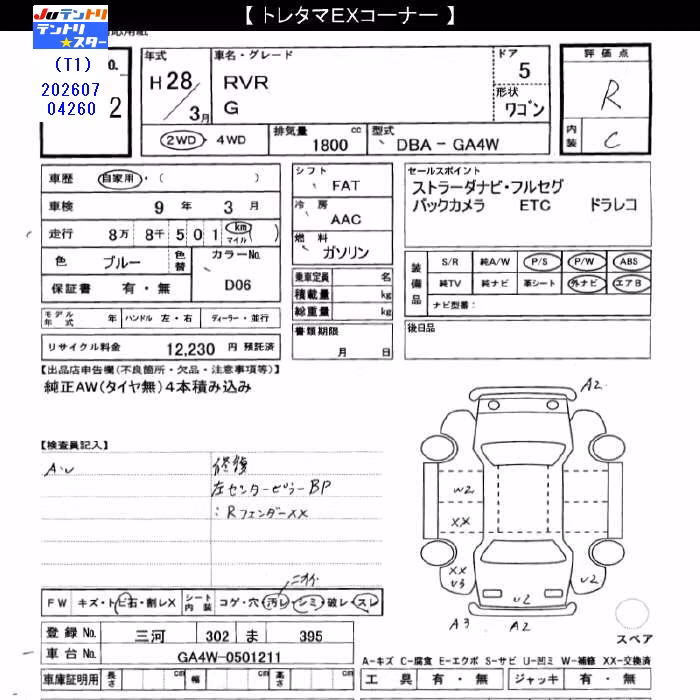 【 トレタマEXコーナー 】
Juテントリ
テントリ★スター
(T1)
202607
04260
o.
2
年式
H 28
3月
車名・グレード
RVR
G
ドア
5
形状
ワゴン
評価点
R
内装
C
2WD・4WD
排気量
1800 cc
型式
DBA - GA4W
車歴 自家用・( )
車検 9 年 3 月
走行 8万 8千 5 0 1 km マイル
色 ブルー 色替
カラーNo.
D06
保証書 有・無
シフト
FAT
冷房
AAC
燃料
ガソリン
乗車定員 名
積載量 kg
総重量 kg
書類期限
月 日
セールスポイント
ストラーダナビ・フルセグ
バックカメラ ETC ドラレコ
装備品
S/R 純A/W P/S P/W ABS
純TV 純ナビ 革シート 外ナビ エアB
ナビ型番:
後日品
モデル年式 年 ハンドル 左・右 ディーラー・並行
リサイクル料金 12,230 円 預託済
【出品店申告欄(不良箇所・欠品・注意事項等)】
純正AW(タイヤ無)4本積み込み
【検査員記入】
修復
左センターピラーBP
:Rフェンダーxx
ニオイ
A2
W2
XX
XX
U3
U2
U2
A3
A2
スペア
FW キズ・トビ石・割レX シート内装 コゲ・穴 汚レ・シミ・破レ・スレ
登録No. 三河 302 ま 395
車台No. GA4W-0501211
車庫証明用 長さ cm 幅 cm 高さ cm
A-キズ C-腐食 E-エクボ S-サビ U-凹ミ W-補修 XX-交換済
工具 有・無 ジャッキ 有・無